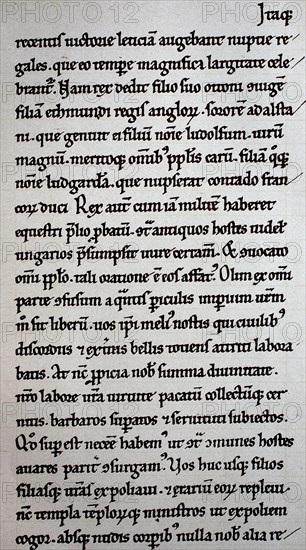 Itaq;
recentis uictorie leticiā augebant nuptie re
gales. que eo tempr̄e magnifica largitate cele
brant̄. Nam rex dedit filio suo ottoni
filiā ethmundi regis angloꝝ. sororē adalsta
ni. que genuit ei filiū noīe ludolfum. uirū
magnū. meritoq; omīb; pp̄lis carū. filiā q̄q;
noīe liudgardā. que nupserat conrado fran
coꝝ duci Rex aut̄ cum iam militē haberet
equestri p̄lio ꝓbatū. 7 antiquos hostes uidel̄
ungarios p̄sumpsit inire certam̄. & euocato
om̄i pp̄lo. tali oratione ē eos affat̄. Olim ex om̄i
parte 9fusum a q̄ntis ꝑiculis imperium ur̄m
m̄ sit liberū. uos ip̄i meli' nostis qui ciuilib;
discordiis & ext̄nis bellis totiens attriti labora
batis. At n̄c ꝓpicia nob̄ summa diuinitate.
nr̄o labore ur̄a uirtute pacatū collectūq; cer
nimus. barbaros supatos & seruituti subiectos.
Qð sup est necēē habem' ut 9tra 9munes hostes
auares parit̄ 9surgam'. Vos huc usq; filios
filiasq; ur̄as expoliaui. & erariū eoꝝ repleui.
n̄c templa tēploꝝq; ministros ut expoliem
cogor. absq; nudis corꝑib; nulla nob̄ alia re/